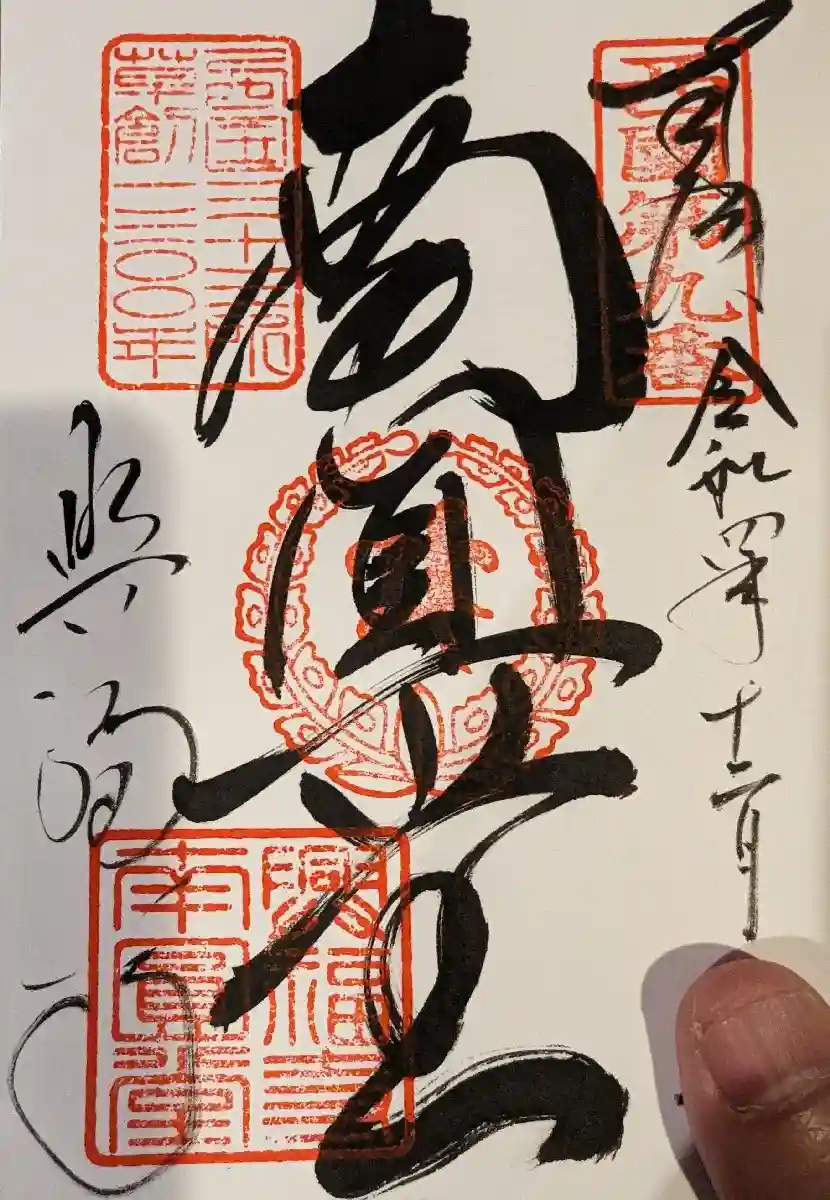 奉拝
令和四年十二月
西国第九番
南圓堂
西国三十三所
草創一三〇〇年
興福寺
興福寺
南圓堂